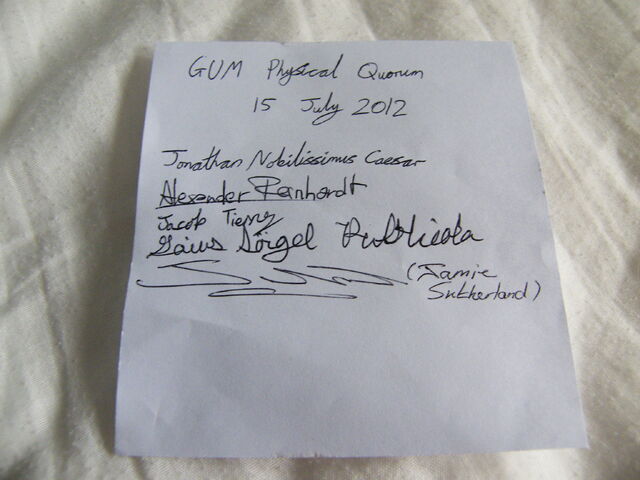 GUM Physical Quorum
15 July 2012
Jonathan Nobilissimus Caesar
Alexander Reinhardt
Jacob Tierney
Gaius Sörgel Publicola
(Jamie
Sutherland)